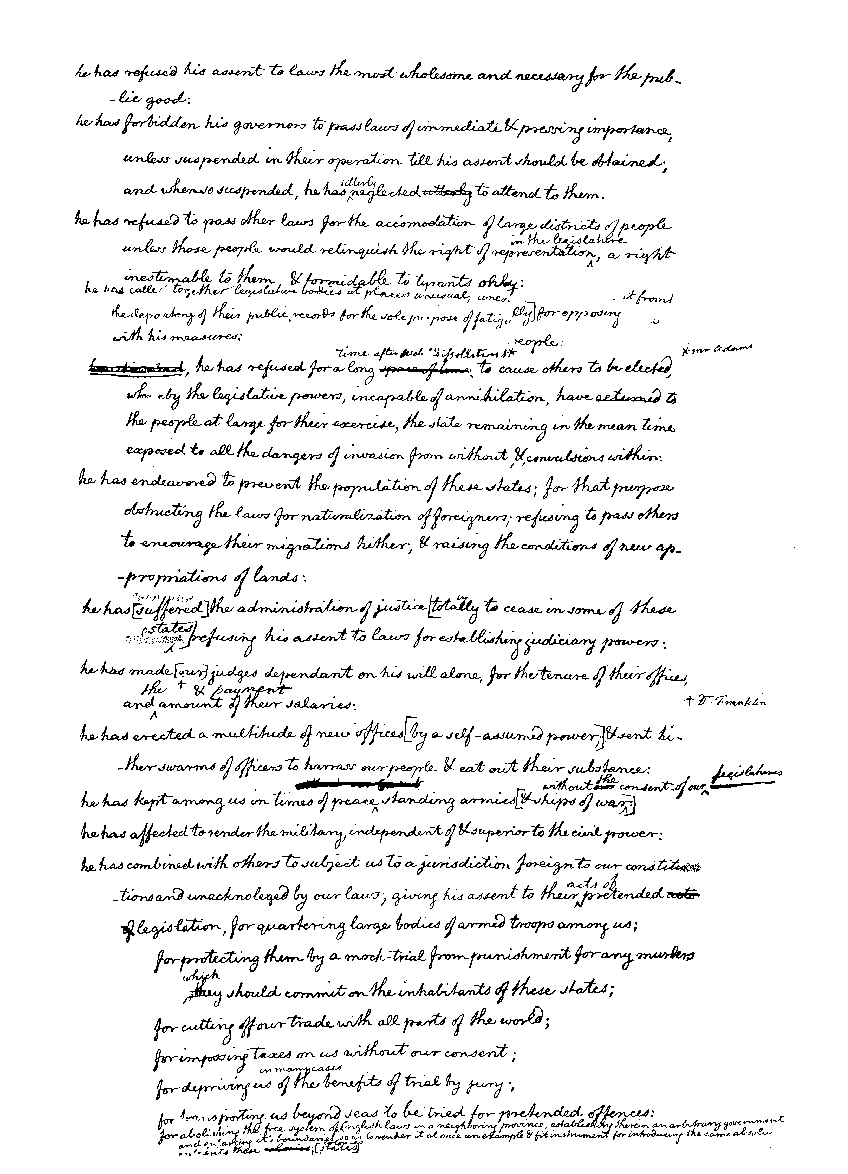 he has refused his assent to laws the most wholesome and necessary for the pub-
-lic good:
he has forbidden his governors to pass laws of immediate & pressing importance,
unless suspended in their operation till his assent should be obtained;
utterly
and when so suspended, he has neglected utterly to attend to them.
he has refused to pass other laws for the accomodation of large districts of people
in the legislature
unless those people would relinquish the right of representation, a right
inestimable to them, & formidable to tyrants only:
he has called together legislative bodies at places unusual,
it from
the depository of their public records for the sole purpose of fatig
lly] for opposing
with his measures:
eople:
time after such Dissolutions *
* mr Adams
, he has refused for a long space of time, to cause others to be elected,
whereby the legislative powers, incapable of annihilation, have returned to
the people at large for their exercise, the state remaining in the mean time
exposed to all the dangers of invasion from without, & convulsions within:
he has endeavored to prevent the population of these states; for that purpose
obstructing the laws for naturalization of foreigners; refusing to pass others
to encourage their migrations hither; & raising the conditions of new ap-
-propriations of lands:
he has [suffered] the administration of justice [totally to cease in some of these
states] refusing his assent to laws for establishing judiciary powers:
he has made [our] judges dependant on his will alone, for the tenure of their offices,
the † & payment
and amount of their salaries:
† Dr. Franklin
he has erected a multitude of new offices [by a self-assumed power,] & sent hi-
-ther swarms of officers to harrass our people & eat out their substance:
without the consent of our legislatures
he has kept among us in times of peace, standing armies [& ships of war]
he has affected to render the military, independent of & superior to the civil power:
he has combined with others to subject us to a jurisdiction foreign to our constitu
-tions and unacknoleged by our laws; giving his assent to their pretended acts
acts of
of legislation, for quartering large bodies of armed troops among us;
for protecting them by a mock-trial from punishment for any murders
which
they should commit on the inhabitants of these states;
for cutting off our trade with all parts of the world;
for imposing taxes on us without our consent;
in many cases
for depriving us of the benefits of trial by jury;
for transporting us beyond seas to be tried for pretended offences:
for abolishing the free system of English laws in a neighboring province, establishing therein an arbitrary government
and enlarging it's boundaries so as to render it at once an example & fit instrument for introducing the same absolu
these [states]